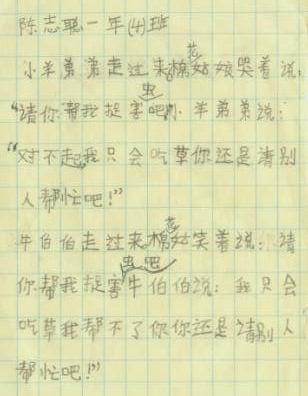 陈志聪一年(4)班
小羊弟弟走过来棉花姑娘哭着说:
“请你帮我捉害虫吧小羊弟弟说:
“对不起,我只会吃草你还是请别
人帮忙吧!”
牛伯伯走过来棉花姑笑着说:请
你帮我捉害虫吧牛伯伯说:我只会
吃草我帮不了你你还是请别人
帮忙吧!”